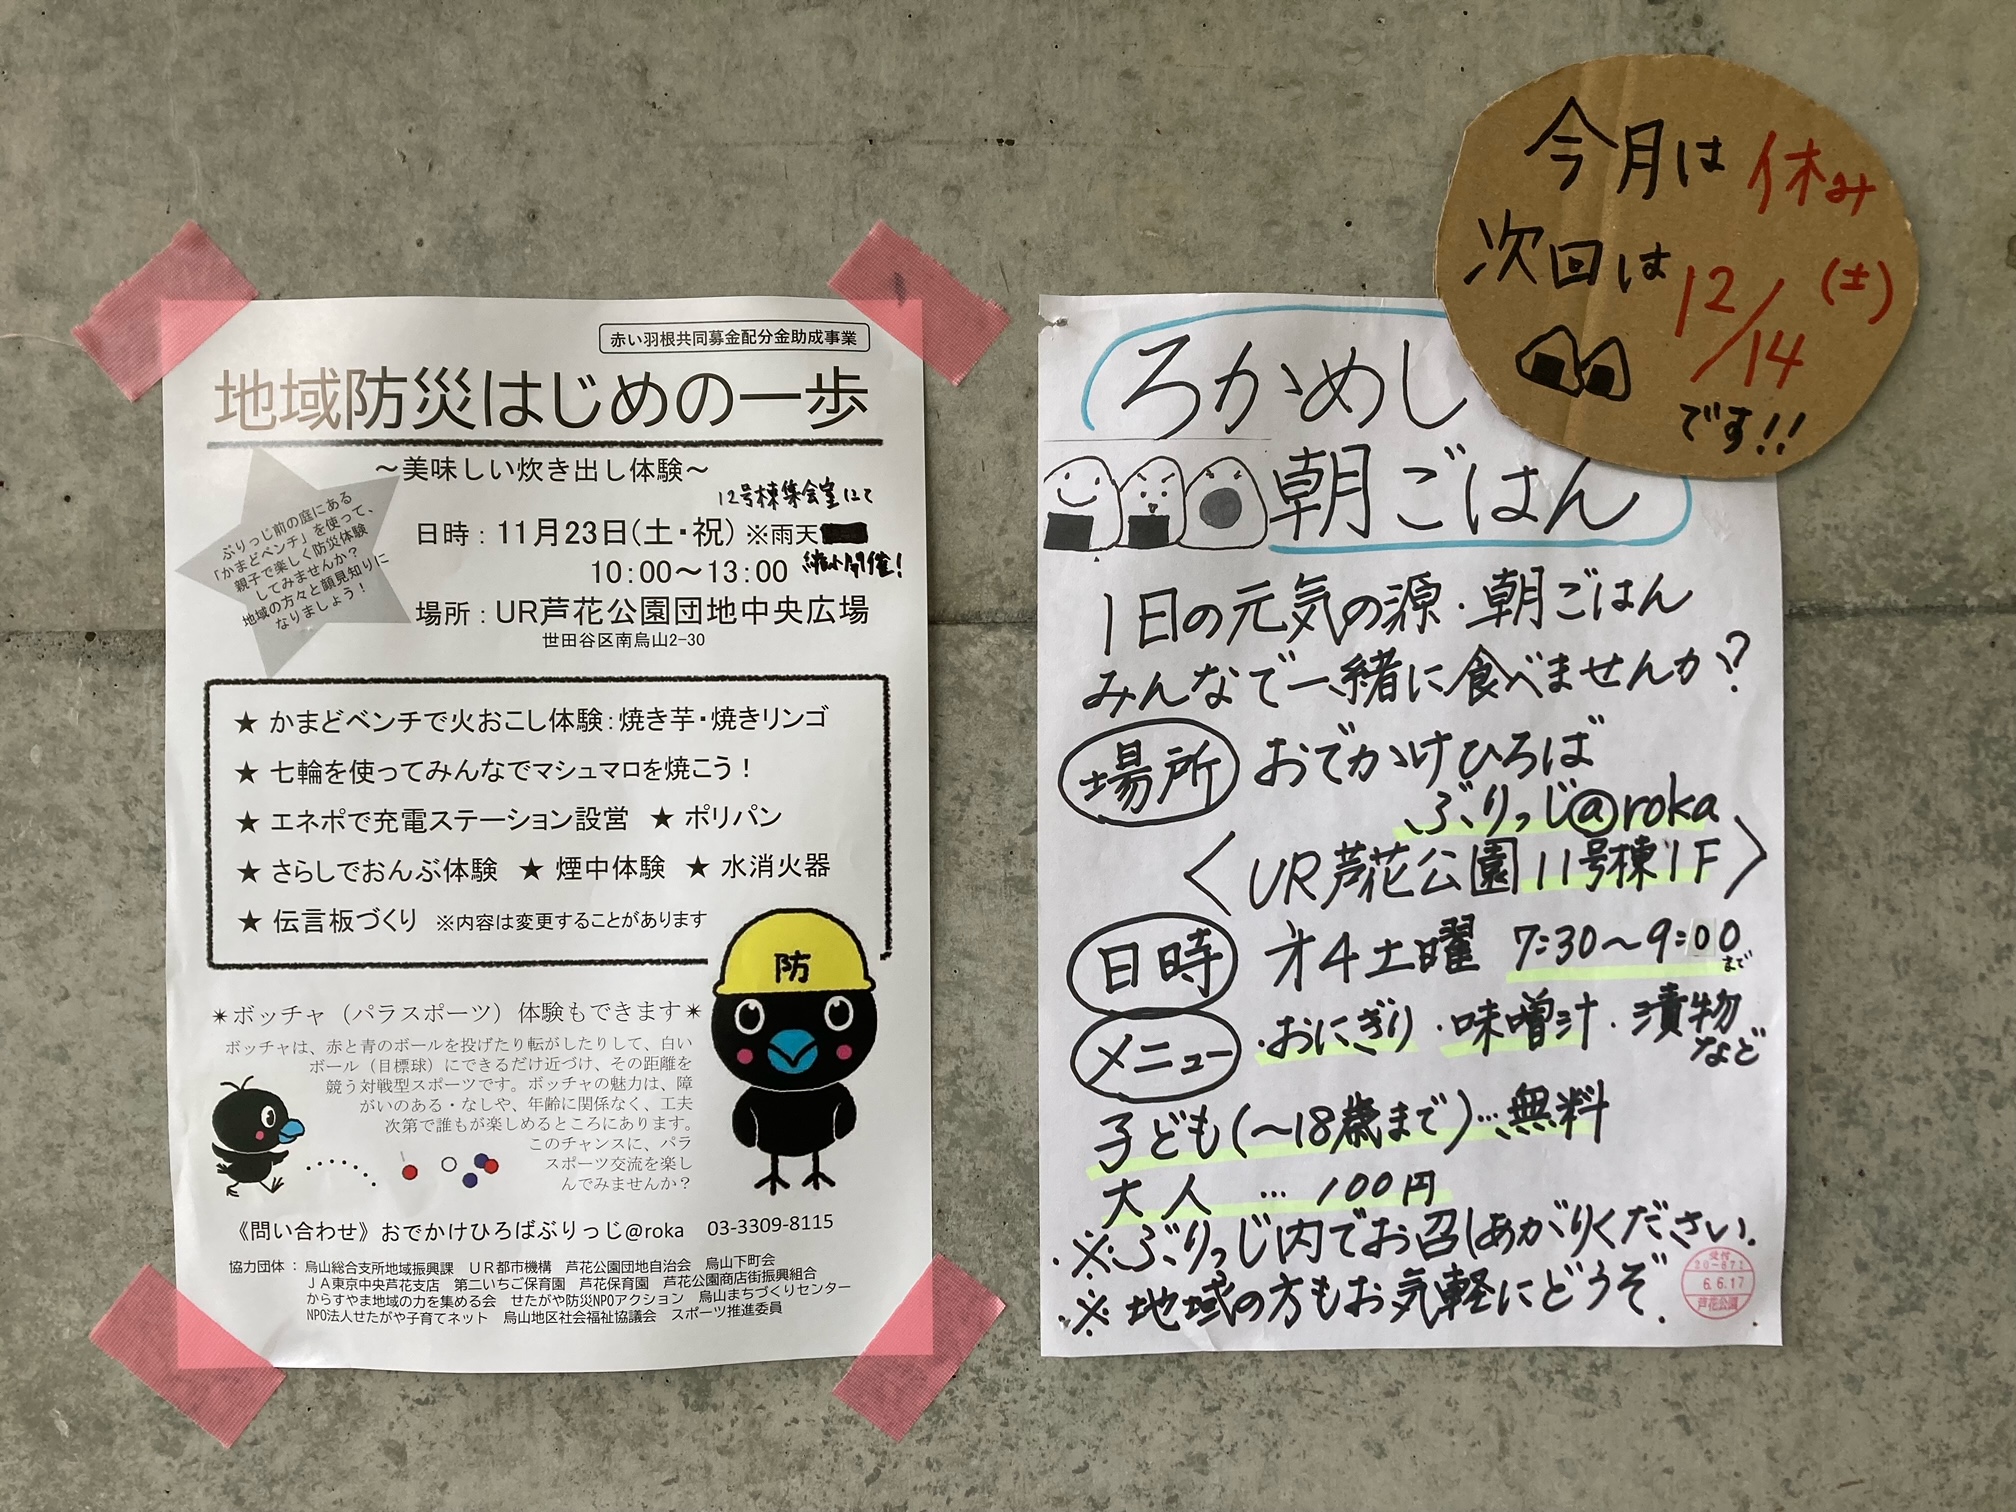 赤い羽根共同募金配分金助成事業
地域防災はじめの一歩
～美味しい炊き出し体験～
ぶりっじ前の庭にある
「かまどベンチ」を使って、
親子で楽しく防災体験
してみませんか？
地域の方々と顔見知りに
なりましょう！
12号棟集会室にて
日時：11月23日(土・祝) ※雨天
縮小開催！
10:00～13:00
場所：UR芦花公園団地中央広場
世田谷区南烏山2-30
★ かまどベンチで火おこし体験：焼き芋・焼きリンゴ
★ 七輪を使ってみんなでマシュマロを焼こう！
★ エネポで充電ステーション設営 ★ ポリパン
★ さらしでおんぶ体験 ★ 煙中体験 ★ 水消火器
★ 伝言板づくり ※内容は変更することがあります
防
✴ボッチャ（パラスポーツ）体験もできます✴
ボッチャは、赤と青のボールを投げたり転がしたりして、白い
ボール（目標球）にできるだけ近づけ、その距離を
競う対戦型スポーツです。ボッチャの魅力は、障
がいのある・なしや、年齢に関係なく、工夫
次第で誰もが楽しめるところにあります。
このチャンスに、パラ
スポーツ交流を楽し
んでみませんか？
《問い合わせ》おでかけひろばぶりっじ@roka 03-3309-8115
協力団体：烏山総合支所地域振興課 UR都市機構 芦花公園団地自治会 烏山下町会
JA東京中央芦花支店 第二いちご保育園 芦花保育園 芦花公園商店街振興組合
からすやま地域の力を集める会 せたがや防災NPOアクション 烏山まちづくりセンター
NPO法人せたがや子育てネット 烏山地区社会福祉協議会 スポーツ推進委員
今月は休み
次回は12/14(土)
です!!
ろかめし
朝ごはん
1日の元気の源・朝ごはん
みんなで一緒に食べませんか？
場所 おでかけひろば
ぶりっじ@roka
〈UR芦花公園11号棟1F〉
日時 才4土曜 7:30～9:00まで
メニュー ・おにぎり・味噌汁・漬物など
子ども(～18歳まで)…無料
大人 … 100円
※ぶりっじ内でお召しあがりください.
※地域の方もお気軽にどうぞ.
受付
20-871
6.6.17
芦花公園